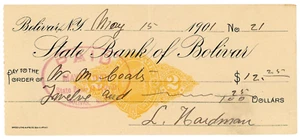 Bolivar, N.Y. May 15 1901 No 21
State Bank of Bolivar
PAY TO THE ORDER OF M. M. Coats $12.25
Twelve and 25/100 DOLLARS
PAID
L. Hardman